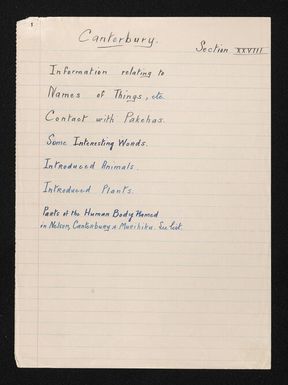 1
Canterbury.
Section XXVIII
Information relating to
Names of Things, etc.
Contact with Pakehas.
Some Interesting Words.
Introduced Animals.
Introduced Plants.
Parts of the Human Body Named
in Nelson, Canterbury & Murihiku. See list.